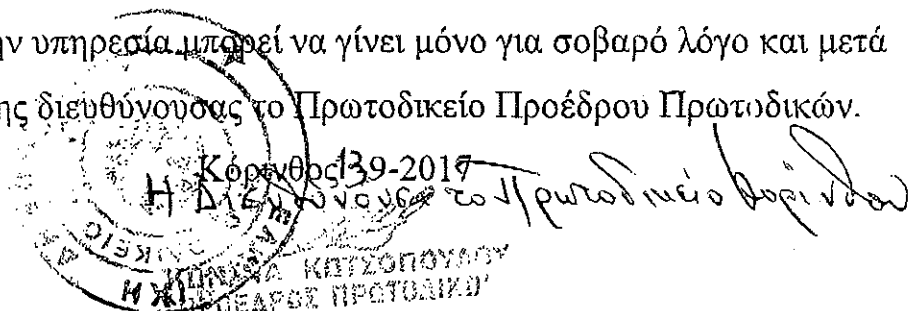 ην υπηρεσία μπορεί να γίνει μόνο για σοβαρό λόγο και μετά
ης διευθύνουσας το Πρωτοδικείο Προέδρου Πρωτοδικών.
Κόρινθος 13-9-2017
Η Διευθύνουσα το Πρωτοδικείο Κορίνθου
ΚΩΤΣΟΠΟΥΛΟΥ
ΠΡΟΕΔΡΟΣ ΠΡΩΤΟΔΙΚΩΝ